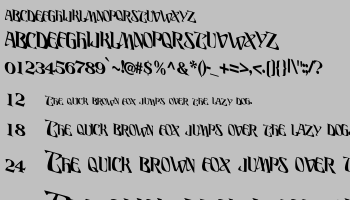 ABCDEFGHIJKLMNOPQRSTUVWXYZ
ABCDEFGHIJKLMNOPQRSTUVWXYZ
0123456789`~!@#$%^&*()-_+=>,<.[]{}|\":;/?
12 The quick brown fox jumps over the lazy dog.
18 The quick brown fox jumps over the lazy dog.
24 The quick brown fox jumps over the